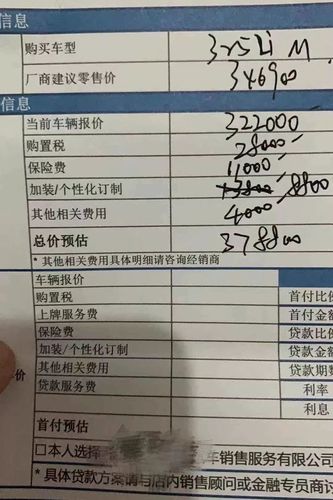 信息
购买车型 325Li M
厂商建议零售价 346900
信息
当前车辆报价 322000
购置税 28000
保险费 11000
加装/个性化订制 13800 8800
其他相关费用 4000
总价预估 378800
* 其他相关费用具体明细请咨询经销商
车辆报价
购置税 首付比例
上牌服务费 首付金额
保险费 贷款比例
加装/个性化订制 贷款金额
价 其他相关费用 贷款期数
贷款服务费 利率
利息
首付预估
□本人选择 车销售服务有限公司
* 具体贷款方案请与店内销售顾问或金融专员商讨